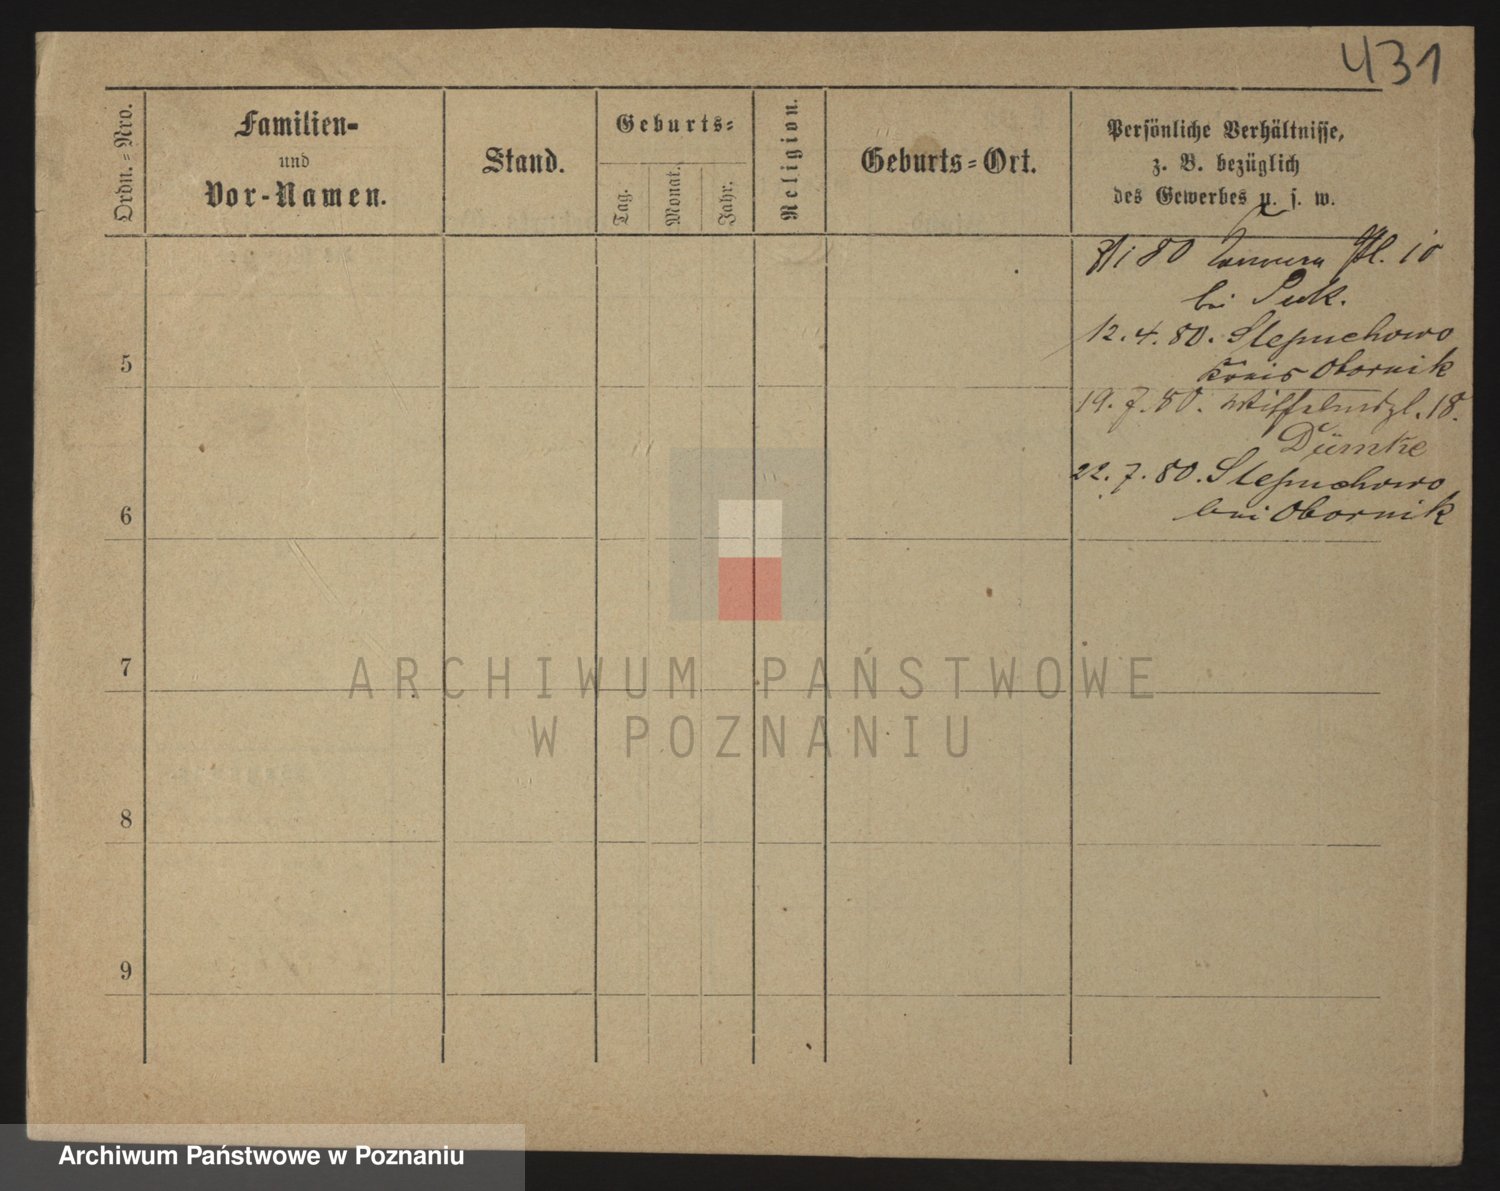 431
Ordn.=Nro.
Familien-
und
Vor-Namen.
Stand.
Geburts=
Tag.
Monat.
Jahr.
Religion.
Geburts=Ort.
Persönliche Verhältnisse,
z. B. bezüglich
des Gewerbes u. s. w.
80
bei
12.4.80. Slepuchowo
Kreis Obornik
5
19.7.80. 18.
Dümke
22.7.80. Slepuchowo
bei Obornik
6
7
8
9
ARCHIWUM PAŃSTWOWE
W POZNANIU
Archiwum Państwowe w Poznaniu